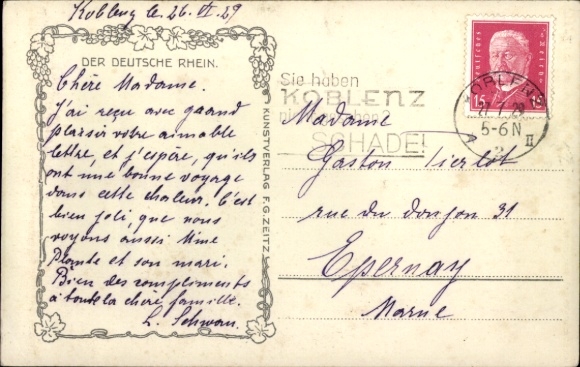 Koblenz le 26 VI 29
DER DEUTSCHE RHEIN.
Chère Madame.
J'ai reçu avec gaand
plaisir votre aimable
lettre, et j'espère, qu'ils
ont une bonne voyage
dans cette chaleur. C'est
bien joli, que nous
voyons aussi Mme
Plante et son mari.
Bien des compliments
à toute la chère famille.
L. Schwan.
KUNSTVERLAG F.G.ZEITZ
Sie haben
KOBLENZ
SCHADE!
Deutsches Reich
15 15
KOBLENZ
29
5-6N
2 II
Madame
Gaston
rue du donjon 31
Epernay
Marne